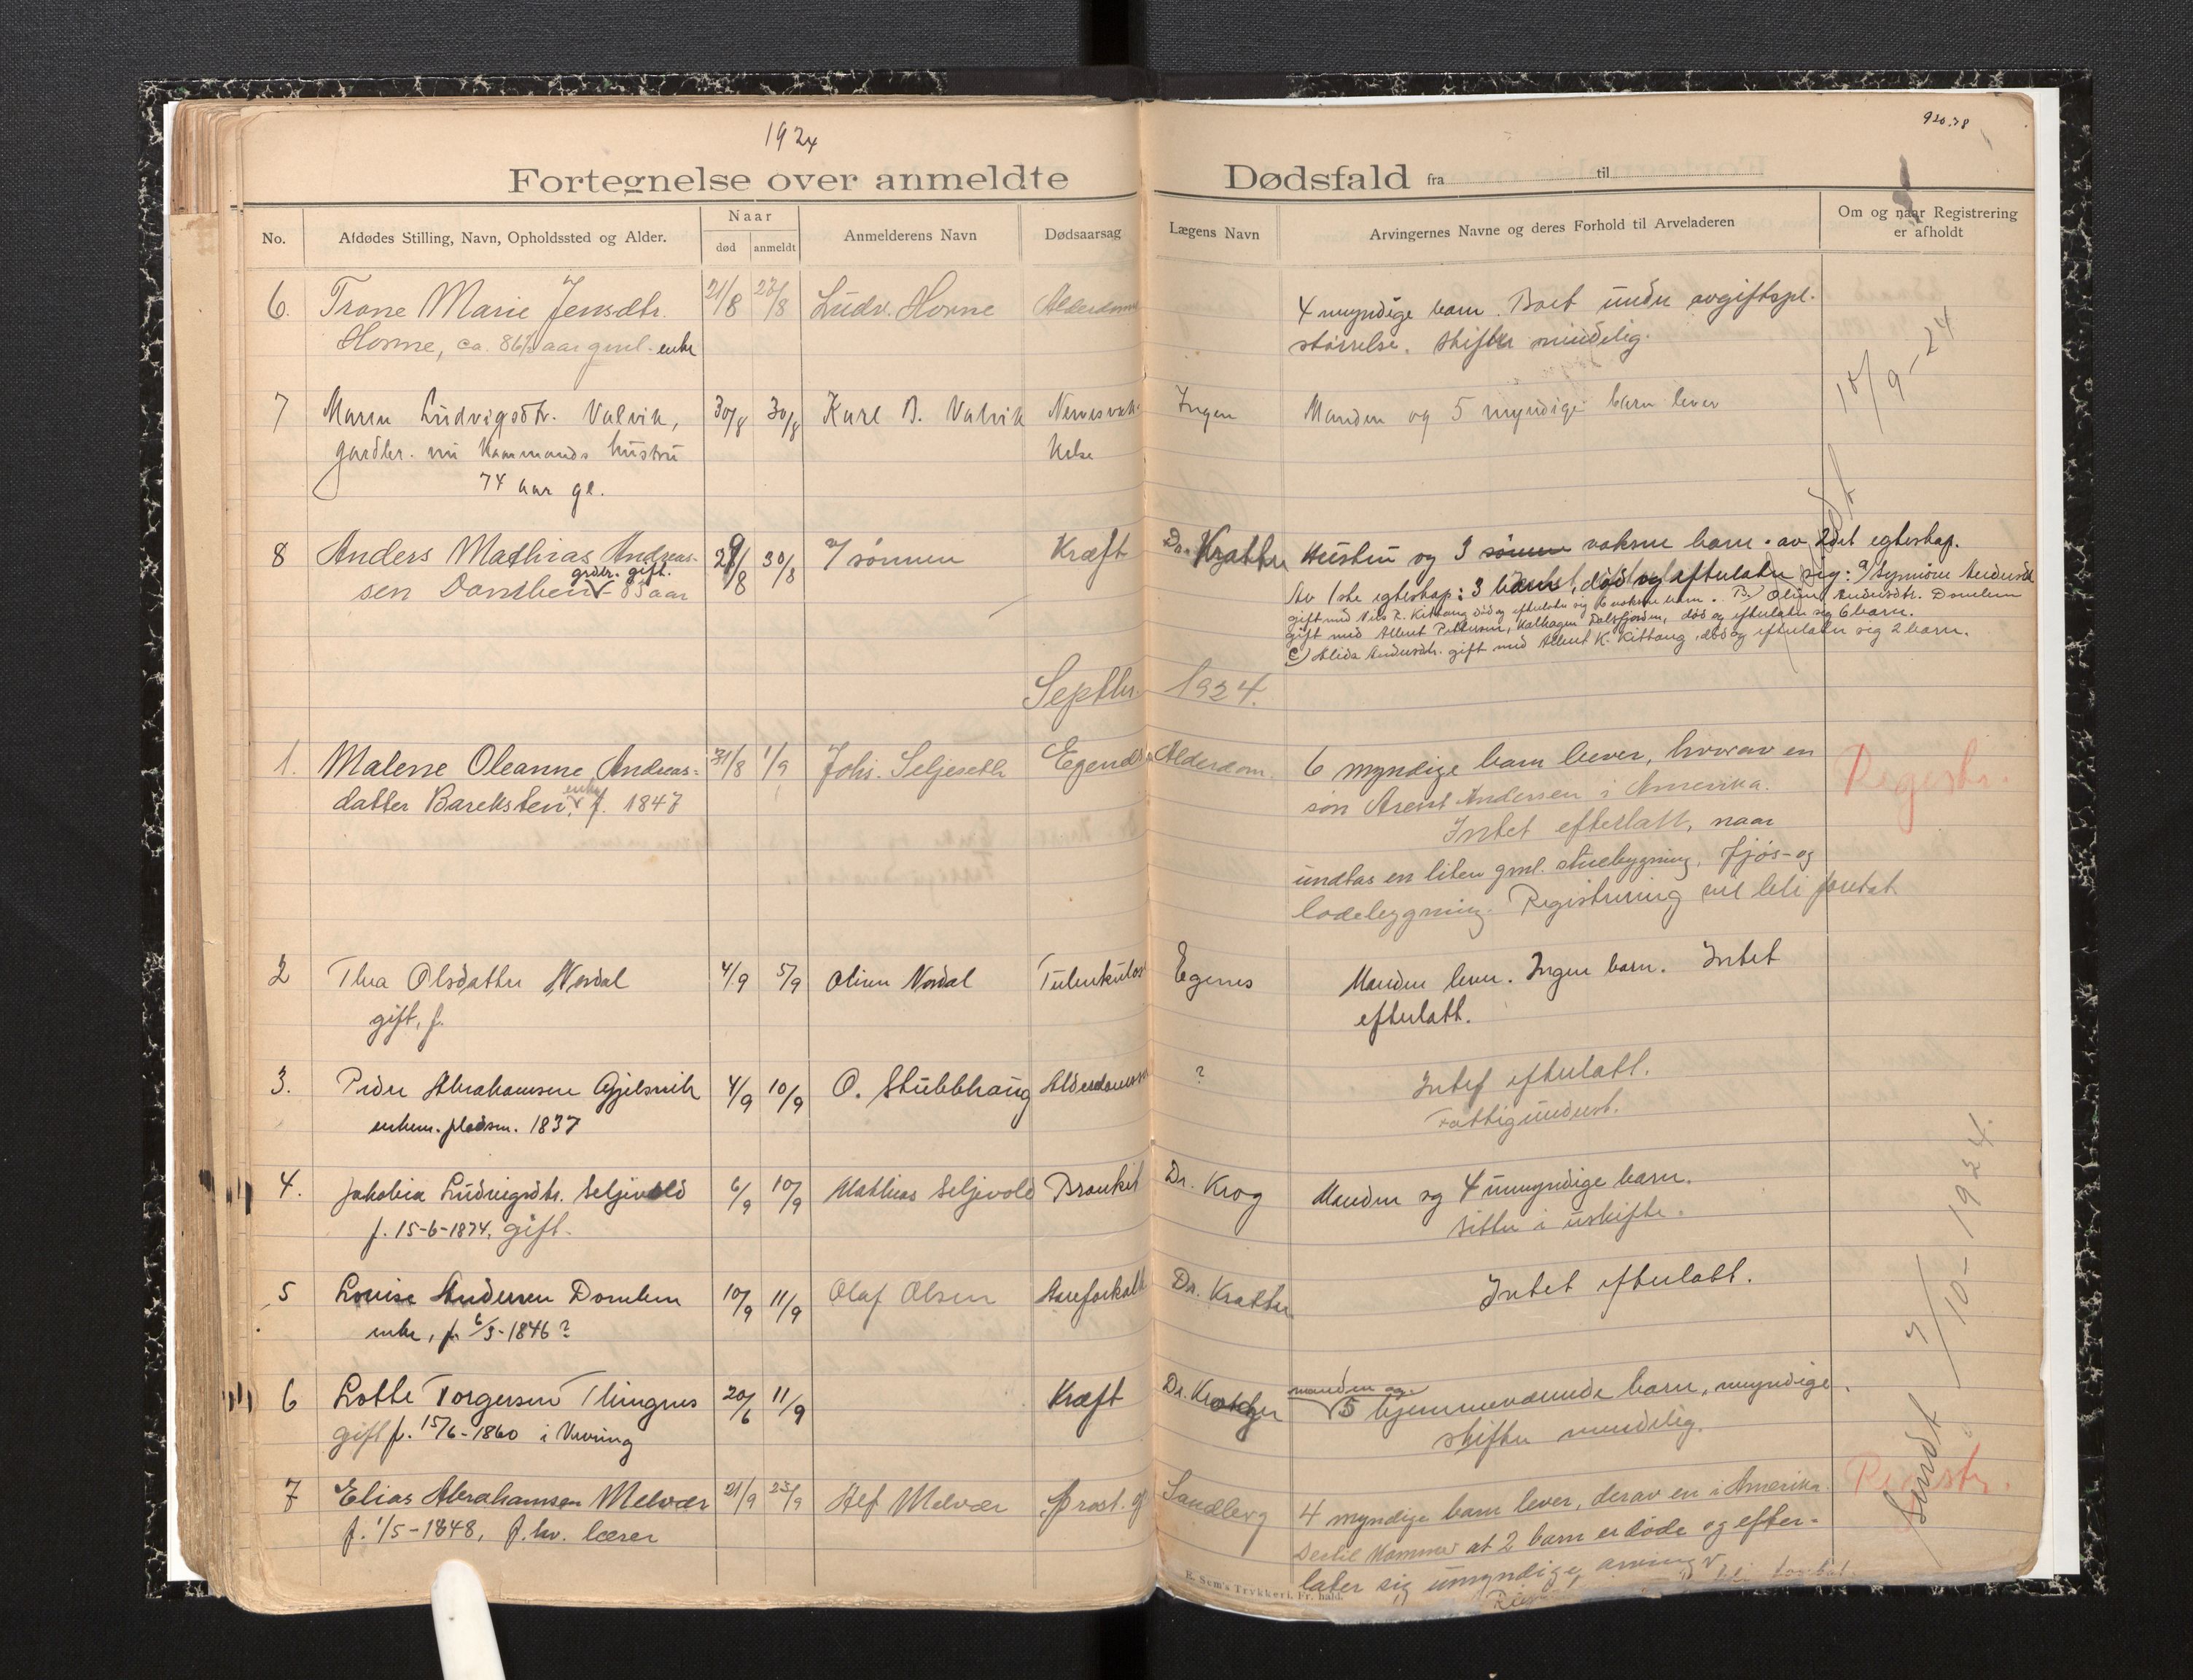 1924
920.78
Fortegnelse over anmeldte Dødsfald fra til
No.
Afdødes Stilling, Navn, Opholdssted og Alder.
Naar
død anmeldt
Anmelderens Navn
Dødsaarsag
Lægens Navn
Arvingernes Navne og deres Forhold til Arveladeren
Om og naar Registrering
er afholdt
6. Trane Marie Jensdtr. 21/8 27/8 Ludv. Horne Alderdom 4 myndige barn. Boet under avgiftspl.
Horne, ca. 86½ aar gml. enke størrelse. Skifter mindelig.
15/9-24
7 Maren Ludvigsdtr. Valvik, 30/8 30/8 Karl B. Valvik Nervesvæk- Ingen Manden og 5 myndige barn lever
gardbr. nu kaarmands hustru
74 aar gl.
8 Anders Mathias Andreas- 29/8 30/8 sønnen Kræft Dr. Kratter Hustru og 3 sønner voksne barn av 2det egteskap.
grdbr. gift.
sen Domben 83 aar Av 1ste egteskap: 3 barn, død og efterlater sig:
gift med Nils R. Kittang død og efterlater sig 6 voksne barn. B) Olina Andersdtr. Domben
gift med Albert Pettersen, Kalhagen Dalsfjorden, død og efterlater sig 6 barn.
C) Alida Andersdtr. gift med Albert K. Kittang, død og efterlater sig 2 barn.
Septbr. 1924.
1. Malene Oleanne Andreas= 31/8 1/9 Johs. Seljeseth Egenes Alderdom. 6 myndige barn lever, hvorav en Registr.
enke
datter Bareksten, f. 1847 søn Arent Andersen i Amerika.
Intet efterlatt, naar
undtas en liten gml. stuebygning, fjøs- og
ladebygning. Registrering vil bli foretat
2 Thea Olsdatter Nordal 4/9 5/9 Oliver Nordal Tuberkulos Egenes Manden lever. Ingen barn. Intet
gift, f. efterlatt.
3. Peder Abrahamsen Gjelsvik 4/9 10/9 O. Stubbhaug Alderdomssv ? Intet efterlatt.
enkem. pladsm. 1837 Fattigunderst.
4. Jakobia Ludvigsdtr. Seljevold 6/9 10/9 Mathias Seljevold Bronkit Dr. Krog Manden og 4 umyndige barn.
f. 15-6-1874, gift. sitter i uskifte.
5 Lovise Andersen Domben 10/9 11/9 Olaf Olsen Aareforkalk Dr. Kratter Intet efterlatt.
enke, f. 6/3-1846?
7/10-1924.
6 Lotte Torgersen Thingnes 20/6 11/9 Kræft Dr. Kratter manden og
5 hjemmeværende barn, myndige.
gift f. 15/6-1860 i Vevring skifter mindelig.
Sendt
7 Elias Abrahamsen Melvær 21/9 23/9 Alf Melvær prost. Sandberg 4 myndige barn lever, derav en i Amerika. Registr.
f. 1/5-1848, f.hv. lærer Dertil kommer at 2 barn er døde og efter-
later sig umyndige arvinger
E. Sem's Trykkeri, Fr.hald.